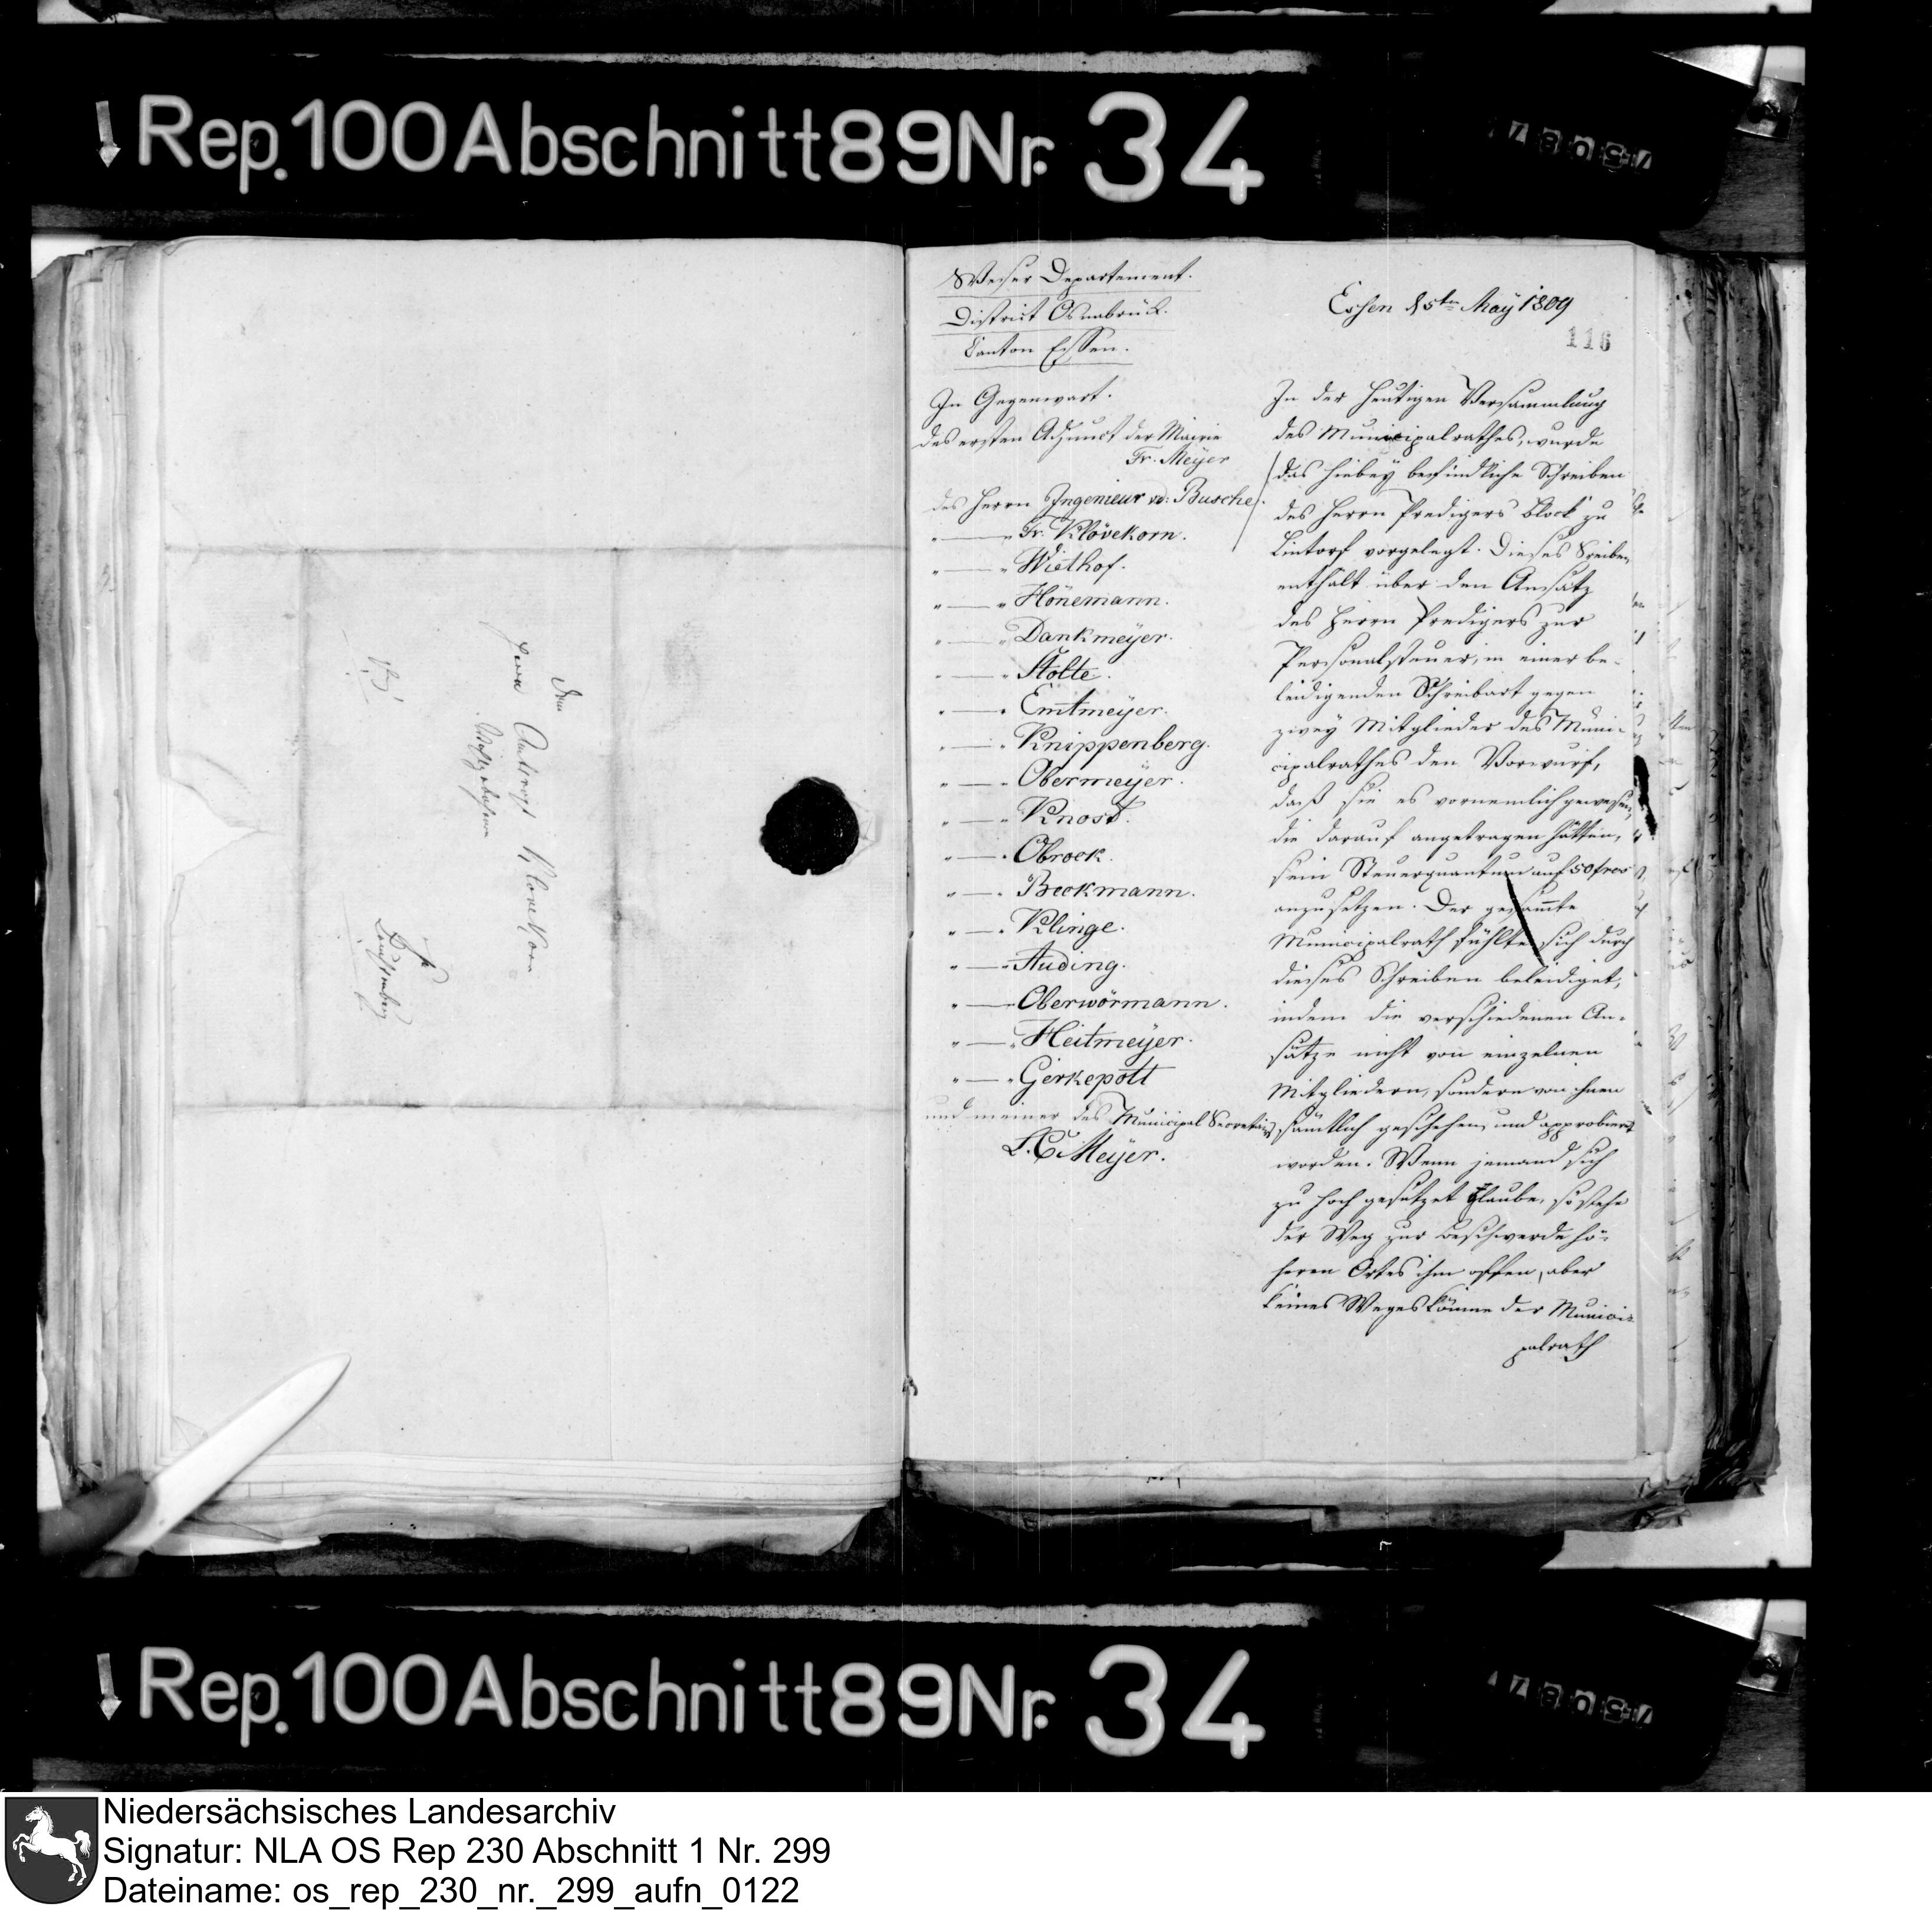 Rep. 100 Abschnitt 89 Nr. 34
dem
Herrn Amtsvogt Klövekorn
Wohlgebohren
Weser Departement.
District Osnabrück.
Canton Essen.
In Gegenwart.
des ersten Adjunct der Mairie
Fr. Meÿer
des Herrn Ingenieur vd: Busche
" — " Fr. Klövekorn.
" — " Wiethof.
" — " Hönemann.
" — " Dankmeÿer.
" — " Stolte.
" — " Emtmeÿer.
" — " Knippenberg.
" — " Obermeÿer.
" — " Knost.
" — " Obrock.
" — " Beckmann.
" — " Klinge.
" — " Auding.
" — " Oberwörmann.
" — " Heitmeÿer.
" — " Gerkepott
und meiner des Municipal Secretairs
L. C. Meÿer.
Essen d 5ten Maÿ 1809
116
In der heutigen Versammlung
des Municipalrathes, wurde
das hiebeÿ befindliche Schreiben
des Herrn Predigers Block zu
Lintorf vorgelegt. Dieses Sreiben
enthält über den Ansatz
des Herrn Predigers zur
Personalsteuer, in einer be-
leidigenden Schreibart gegen
zweÿ Mitglieder des Muni-
cipalrathes den Vorwurf,
daß sie es vornemlich gewesen,
die darauf angetragen hätten,
sein Steuerquantum auf 50 frcs
anzusetzen. Der gesamte
Municipalrath fühlte sich durch
dieses Schreiben beleidiget,
indem die verschiedenen An-
sätze nicht von einzelnen
Mitgliedern, sondern von ihnen
sämtlich geschehen, und approbiert
worden. Wenn jemand sich
zu hoch gesetzet glaube, so stehe
der Weg zur Beschwerde hö-
heren Ortes ihm offen, aber
keines Weges könne der Munici-
palrath
Rep. 100 Abschnitt 89 Nr. 34
Niedersächsisches Landesarchiv
Signatur: NLA OS Rep 230 Abschnitt 1 Nr. 299
Dateiname: os_rep_230_nr._299_aufn_0122